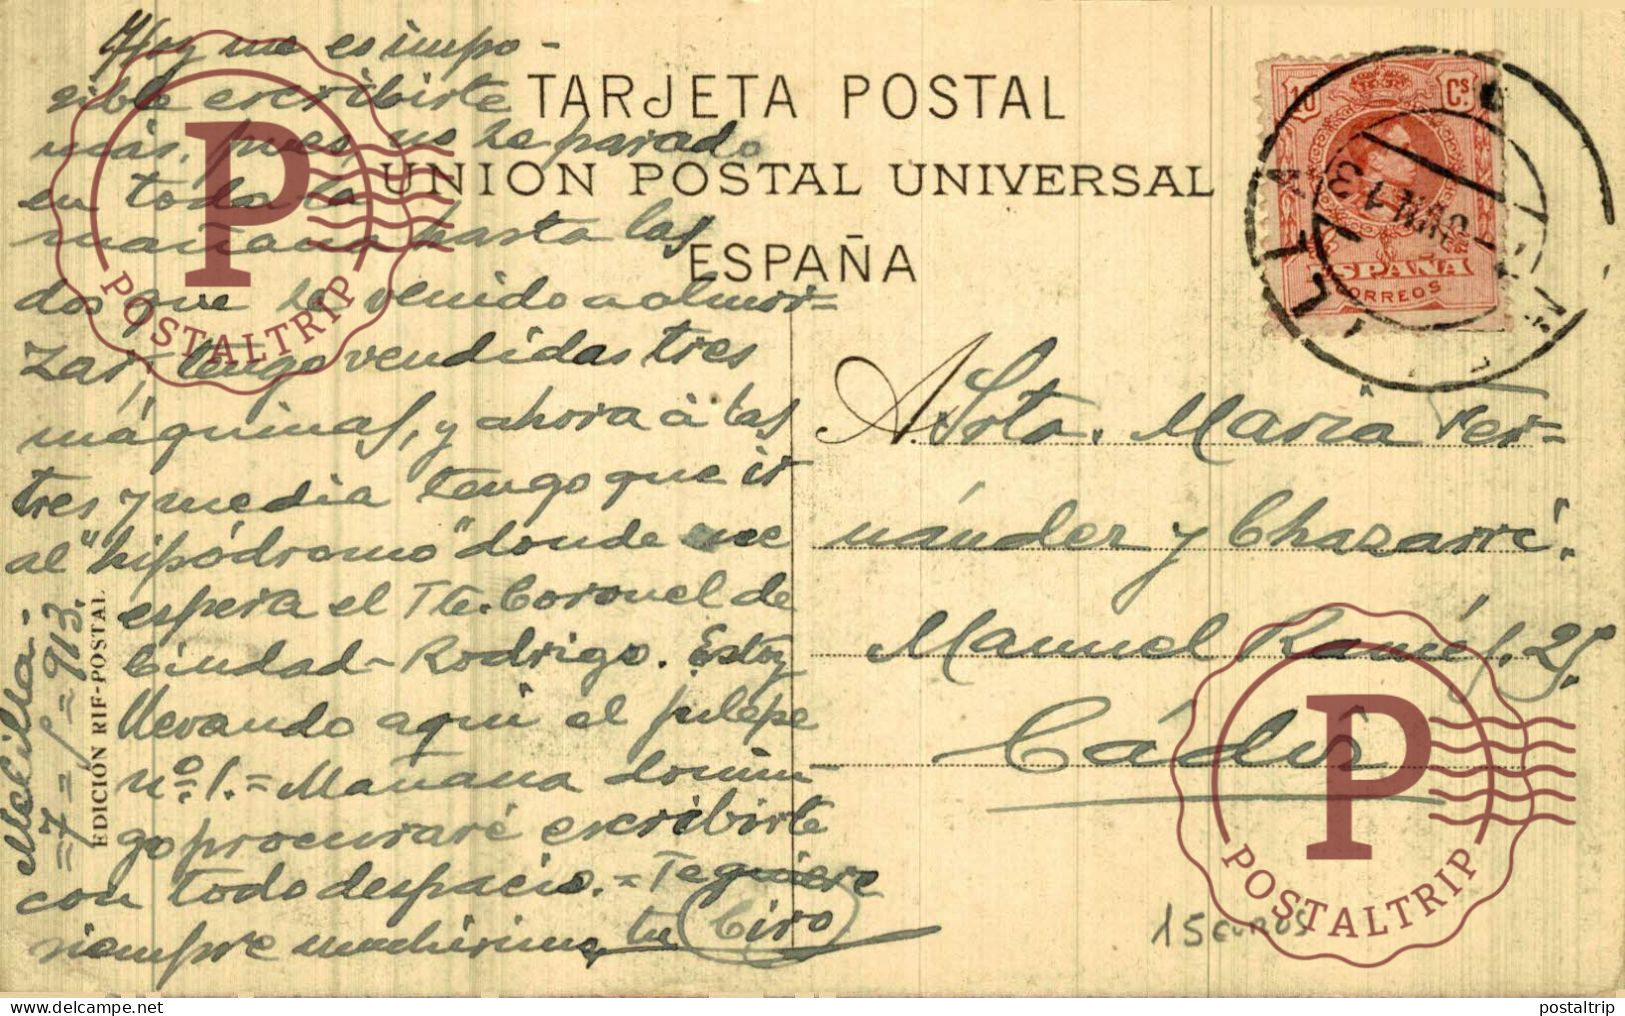 Hoy me es impo-
sible escribirte
más, pues, no he parado
en toda la
mañana hasta las
dos que he venido a almor-
zar; tengo vendidas tres
máquinas, y ahora á las
tres y media tengo que ir
al "hipódromo" donde me
espera el Tte. Coronel de
Ciudad-Rodrigo. Estoy
llevando aquí el julepe
nº. 1.= Mañana domin-
go procuraré escribirte
con todo despacio.= Te quiere
siempre muchisimo, tu Ciro
Melilla-
=7=
=913.
EDICIÓN RIF-POSTAL
TARJETA POSTAL
UNION POSTAL UNIVERSAL
ESPAÑA
10 Cs.
ESPAÑA
CORREOS
MELILLA
13
A. Srta. María Fer-
nández y Chazarri.
Manuel Rancés, 25.
Cádiz
15 EUROS
P
POSTALTRIP
P
POSTALTRIP
https://www.delcampe.net
postaltrip